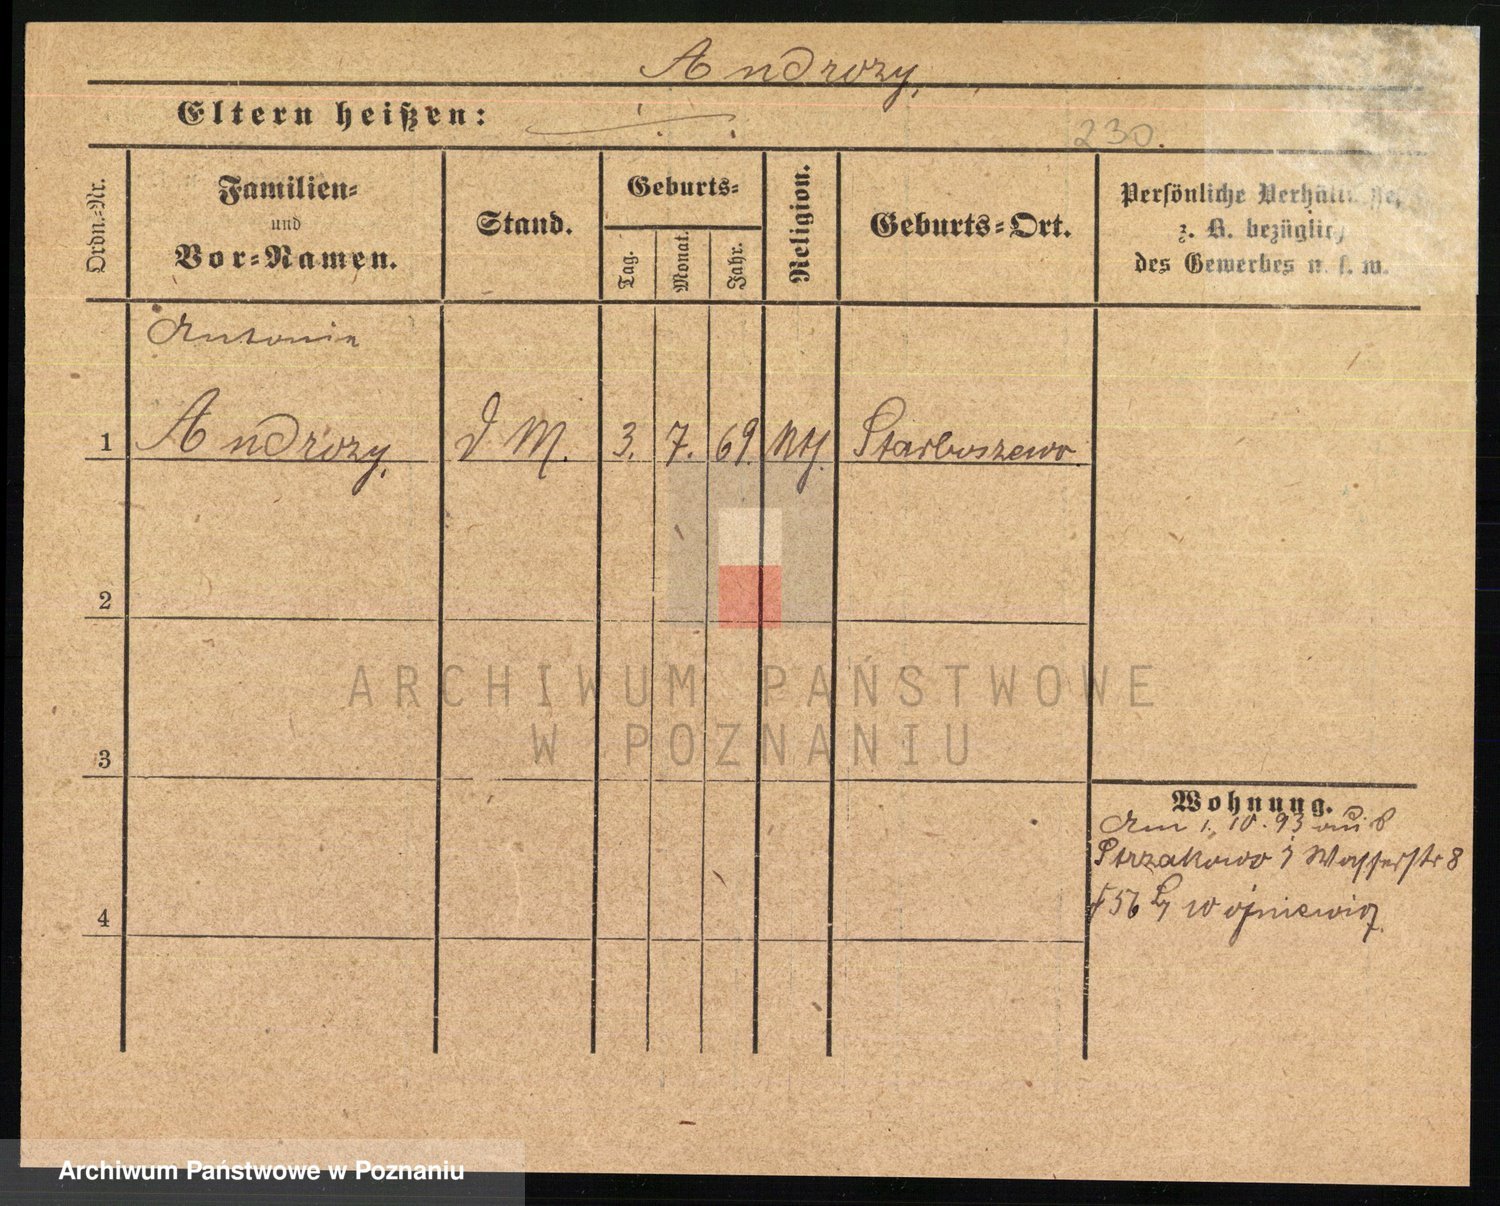 Androzy.
Eltern heißen:
230.
Ordn.-Nr.
Familien-
und
Vor-Namen.
Stand.
Geburts-
Tag.
Monat.
Jahr.
Religion.
Geburts-Ort.
Persönliche Verhältnisse,
z. B. bezüglich
des Gewerbes u. s. w.
Antonie
1 Androzy. D M. 3. 7. 69.
2
3
4
Wohnung.
Am 1. 10. 93 aus
Wasserstr 8
ARCHIWUM PAŃSTWOWE
W POZNANIU
Archiwum Państwowe w Poznaniu